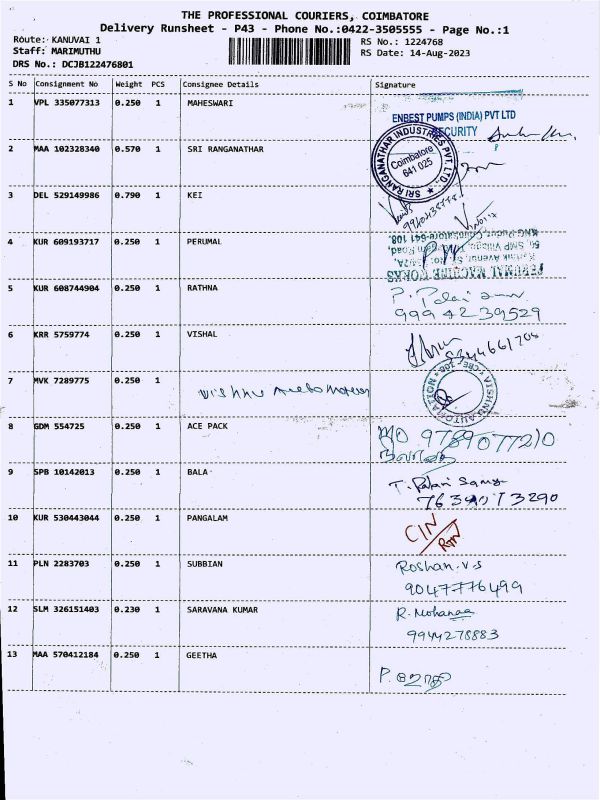 THE PROFESSIONAL COURIERS, COIMBATORE
Delivery Runsheet - P43 - Phone No.:0422-3505555 - Page No.:1
Route: KANUVAI 1
RS No.: 1224768
Staff: MARIMUTHU
RS Date: 14-Aug-2023
DRS No.: DCJB122476801
S No Consignment No Weight PCS Consignee Details Signature
1 VPL 335077313 0.250 1 MAHESWARI
ENBEST PUMPS (INDIA) PVT LTD
SECURITY
2 MAA 102328340 0.570 1 SRI RANGANATHAR
SRI RANGANATHAR INDUSTRIES PVT. LTD.
Coimbatore
641 025
3 DEL 529149986 0.790 1 KEI
4 KUR 609193717 0.250 1 PERUMAL
PERUMAL MACHINE WORKS
5 KUR 608744904 0.250 1 RATHNA
99942 39529
6 KRR 5759774 0.250 1 VISHAL
7 MVK 7289775 0.250 1
8 GDM 554725 0.250 1 ACE PACK
9789077210
9 SPB 10142013 0.250 1 BALA
T. Palani Samy
10 KUR 530443044 0.250 1 PANGALAM
CIN
RTN
11 PLN 2283703 0.250 1 SUBBIAN
Roshan.V.S
9047776499
12 SLM 326151403 0.230 1 SARAVANA KUMAR
R. Mohanaa
9944278883
13 MAA 570412184 0.250 1 GEETHA